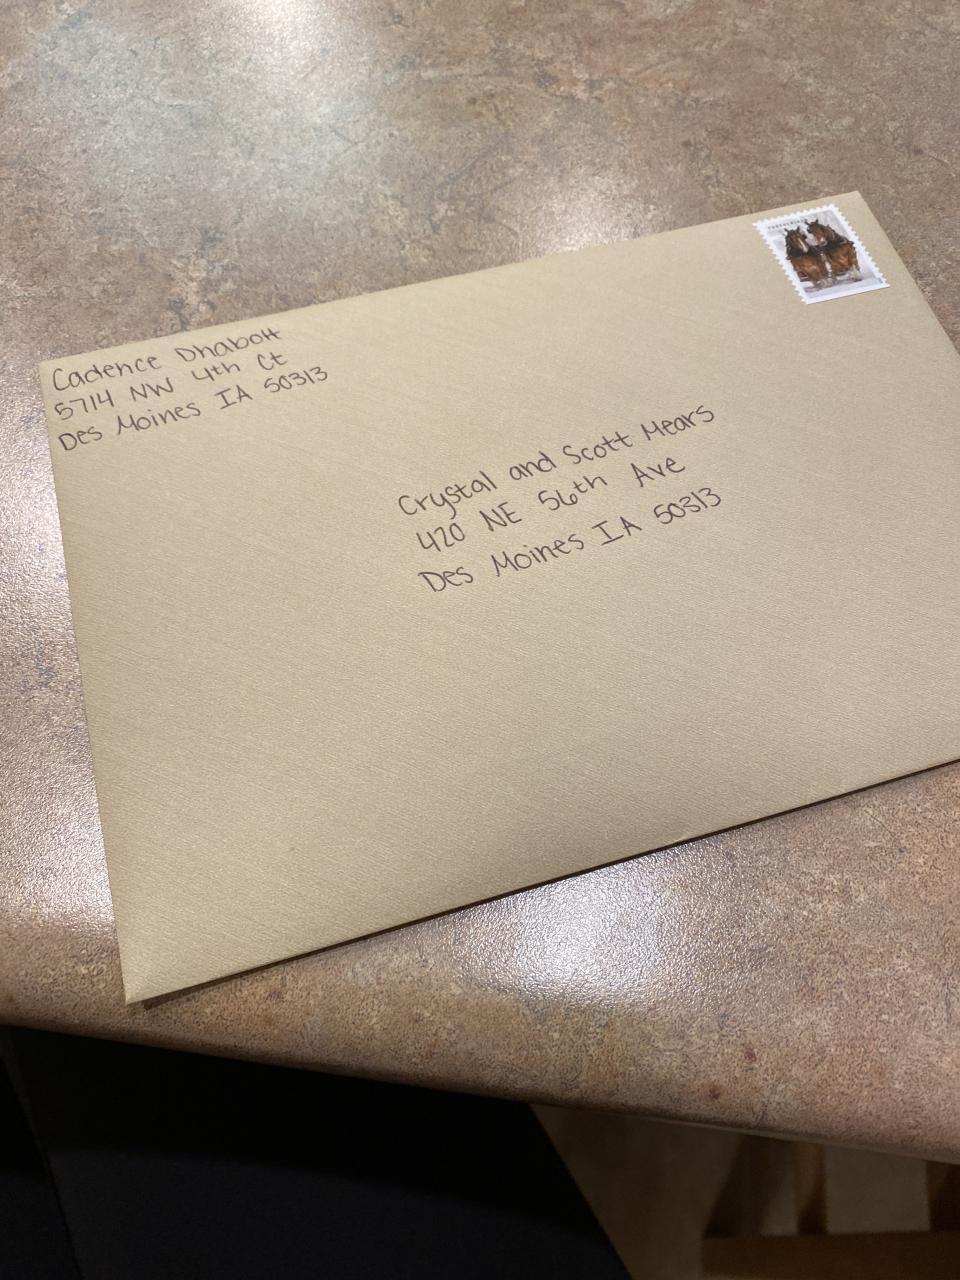 Cadence Dhabolt
5714 NW 4th Ct
Des Moines IA 50313
Crystal and Scott Mears
420 NE 56th Ave
Des Moines IA 50313